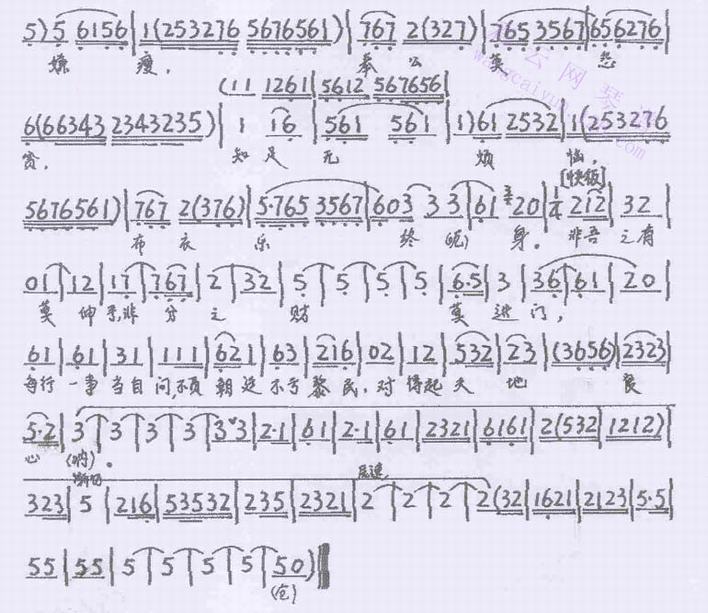 5) 5 6156 | 1 (253276 5676561) | 767 2 (327) | 765 3567 | 656276 |
嫌 瘦, 奉 公 莫 怨
(11 1261 | 5612 567656 |
6(66343 2343235) | 1 16 | 561 561 | 1) 61 2532 | 1 (253276
贫, 知 足 元 烦 恼,
[快板]
5676561) | 767 2(376) | 5·765 3567 | 603 3 3 | 61 20 | 1/4 212 | 32 |
布 衣 乐 终 (呃) 身。 非吾 之有
01 | 12 | 17 | 767 | 2 | 32 | 5 | 5 | 5 | 5 | 6·5 | 3 | 36 | 61 | 20 |
莫 伸手,非 分 之 财 莫 进 门,
61 | 61 | 31 | 111 | 621 | 63 | 216 | 02 | 12 | 532 | 23 | (3656) | 2323 |
每行 一事 当自 问,不负 朝廷 不亏 黎 民, 对 得起 天 地 良
5·2 | 3 | 3 | 3 | 3 | 3 3 | 2·1 | 61 | 2·1 | 61 | 2321 | 6161 | 2(532 | 1212) |
心 (呐)。
渐切 尾速
323 | 5 | 216 | 53532 | 235 | 2321 | 2 | 2 | 2 | 2 (32 | 1621 | 2123 | 5·5 |
55 | 55 | 5 | 5 | 5 | 5 | 50) |
(仓)